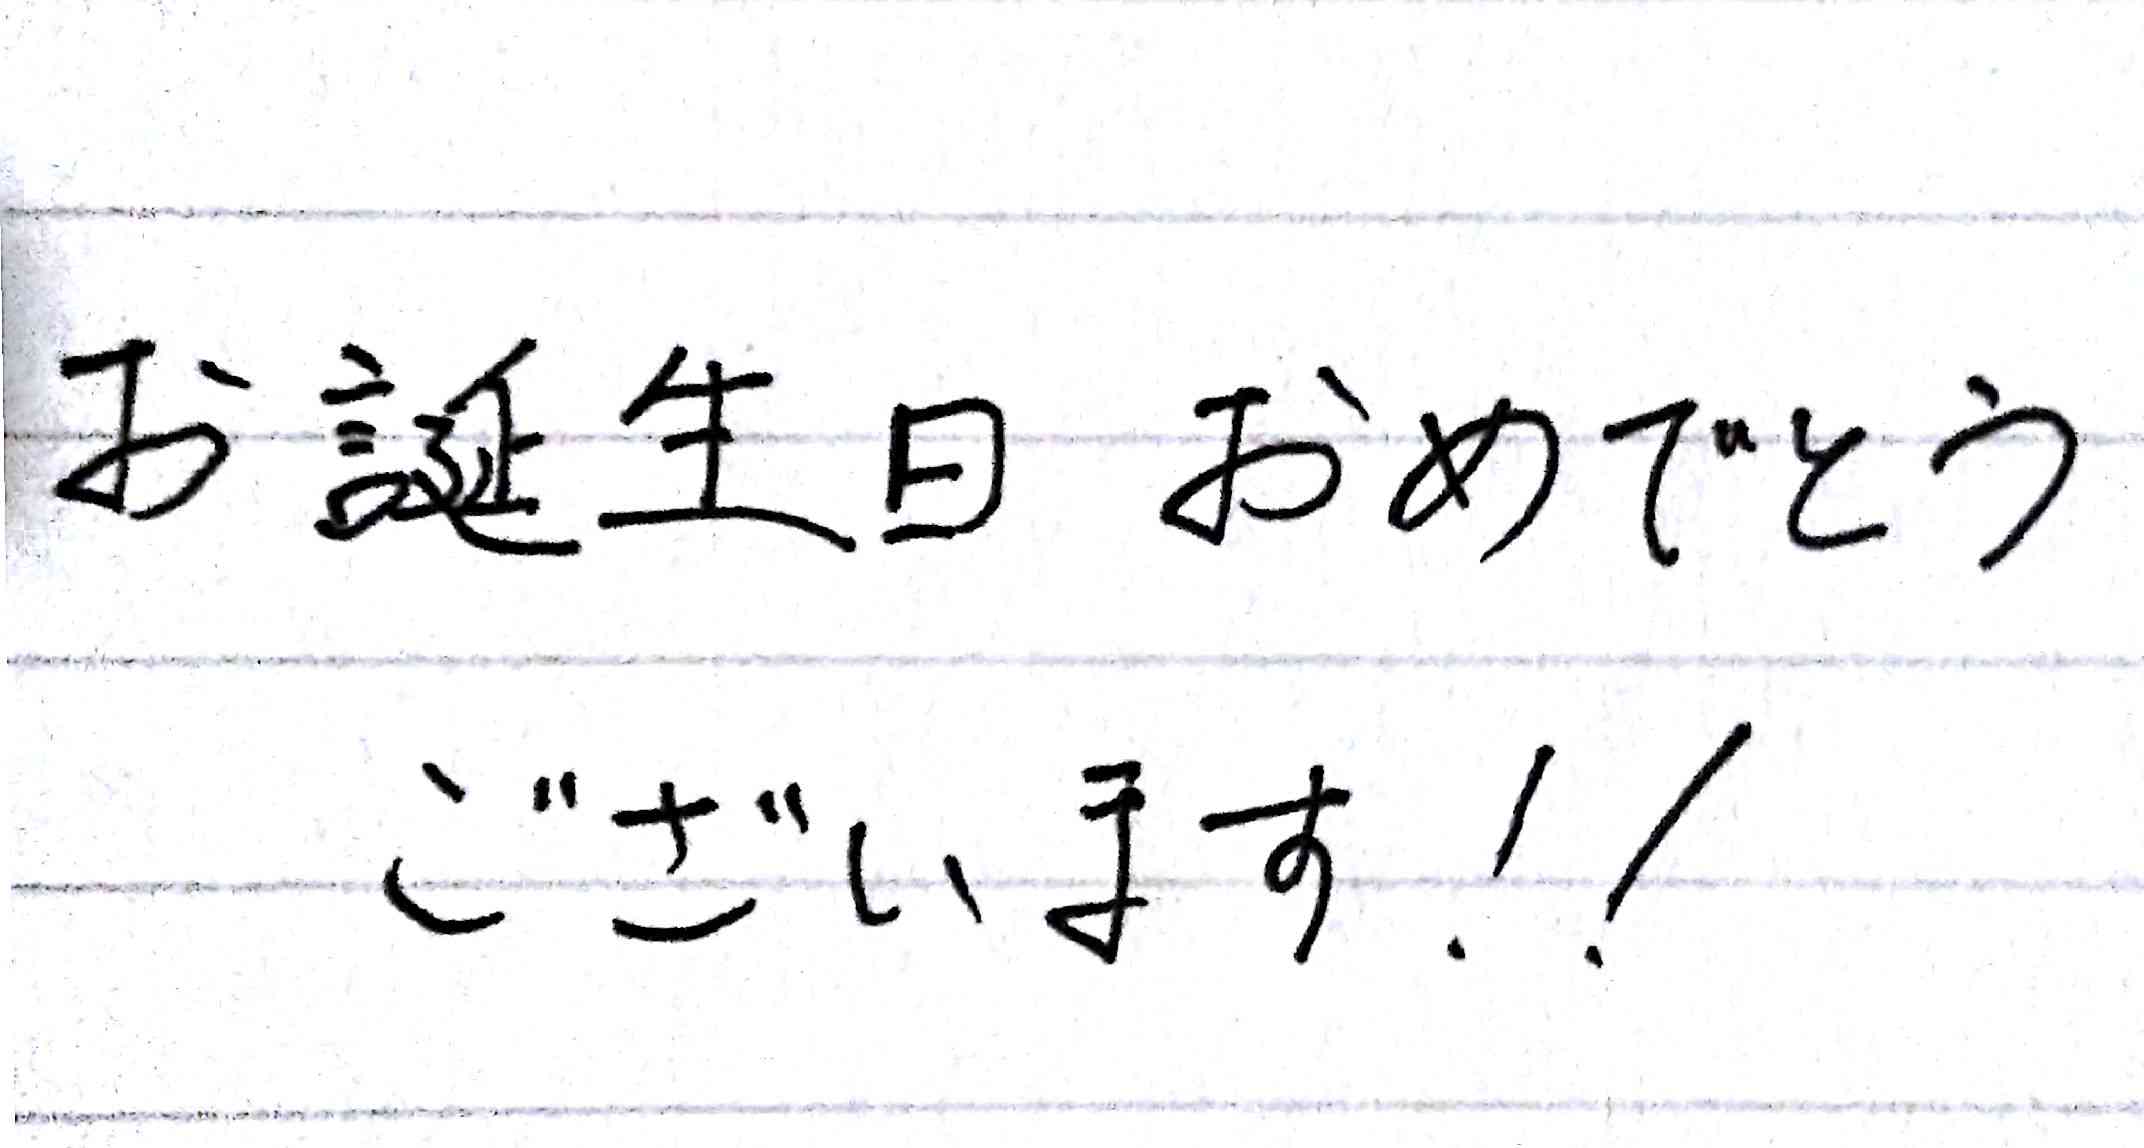 お誕生日 おめでとう
ございます!!